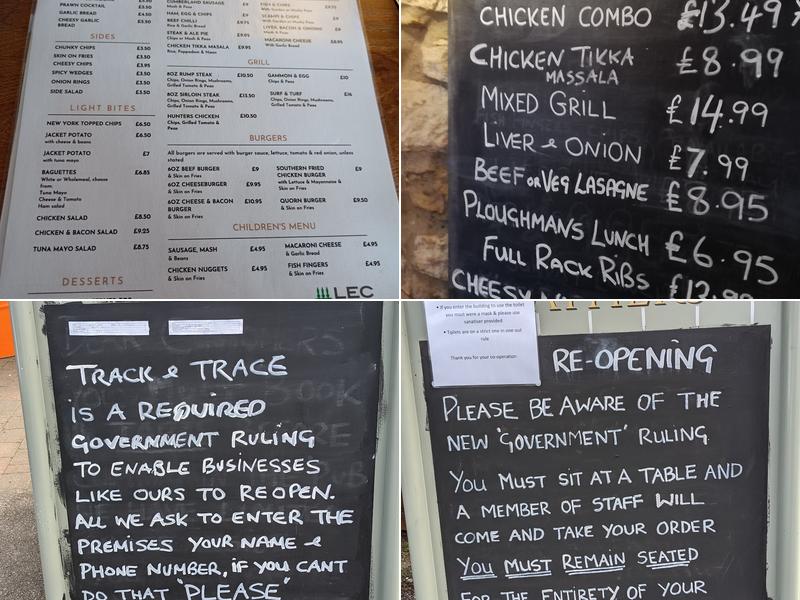 PRAWN COCKTAIL £6.50
GARLIC BREAD £4.50
CHEESY GARLIC £5.50
BREAD
SIDES
CHUNKY CHIPS £3.50
SKIN ON FRIES £3.50
CHEESY CHIPS £3.95
SPICY WEDGES £3.50
ONION RINGS £3.50
SIDE SALAD £3.50
LIGHT BITES
NEW YORK TOPPED CHIPS £6.50
JACKET POTATO £6.50
with cheese & beans
JACKET POTATO £7
with tuna mayo
BAGUETTES £6.85
White or Wholemeal, choose
from:
Tuna Mayo
Cheese & Tomato
Ham salad
CHICKEN SALAD £8.50
CHICKEN & BACON SALAD £9.25
TUNA MAYO SALAD £8.75
DESSERTS
CUMBERLAND SAUSAGE
Mash & Peas
HAM, EGG & CHIPS £9
BEEF CHILLI £9.75
Rice & Salad
STEAK & ALE PIE
Chips or Mash & Peas
CHICKEN TIKKA MASALA £9.95
Rice, Poppadom & Naan
FISH & CHIPS
SCAMPI & CHIPS £9
LIVER, BACON & ONIONS £9
Mash & Peas
MACARONI CHEESE £8.95
With Garlic Bread
GRILL
8OZ RUMP STEAK £10.50
Chips, Onion Rings, Mushrooms,
Grilled Tomato & Peas
8OZ SIRLOIN STEAK £13.50
Chips, Onion Rings, Mushrooms,
Grilled Tomato & Peas
HUNTERS CHICKEN £10.50
Chips, Grilled Tomato &
Peas
GAMMON & EGG £10
Chips & Peas
SURF & TURF £16
Chips, Onion Rings, Mushrooms,
Grilled Tomato & Peas
BURGERS
All burgers are served with burger sauce, lettuce, tomato & red onion, unless
stated
6OZ BEEF BURGER £9
& Skin on Fries
6OZ CHEESEBURGER £9.95
& Skin on Fries
6OZ CHEESE & BACON £10.95
BURGER
& Skin on Fries
SOUTHERN FRIED £9
CHICKEN BURGER
with Lettuce & Mayonnaise &
Skin on Fries
QUORN BURGER £9.50
& Skin on Fries
CHILDREN'S MENU
SAUSAGE, MASH £4.95
& Beans
CHICKEN NUGGETS £4.95
& Skin on Fries
MACARONI CHEESE £4.95
& Garlic Bread
FISH FINGERS £4.95
& Skin on Fries
LEC
CHICKEN COMBO £13.49
CHICKEN TIKKA £8.99
MASSALA
MIXED GRILL £14.99
LIVER & ONION £7.99
BEEF OR VEG LASAGNE £8.95
PLOUGHMANS LUNCH £6.95
FULL RACK RIBS
CHEESY
TRACK & TRACE
IS A REQUIRED
GOVERNMENT RULING
TO ENABLE BUSINESSES
LIKE OURS TO REOPEN.
ALL WE ASK TO ENTER THE
PREMISES YOUR NAME &
PHONE NUMBER, IF YOU CANT
DO THAT "PLEASE"
• If you enter the building to use the toilet
you must wore a mask & please use
sanatiser provided
• Toilets are on a strict one in one out
rule
Thank you for your co-operation
RE-OPENING
PLEASE BE AWARE OF THE
NEW 'GOVERNMENT' RULING
YOU MUST SIT AT A TABLE AND
A MEMBER OF STAFF WILL
COME AND TAKE YOUR ORDER
YOU MUST REMAIN SEATED
FOR THE ENTIRETY OF YOUR